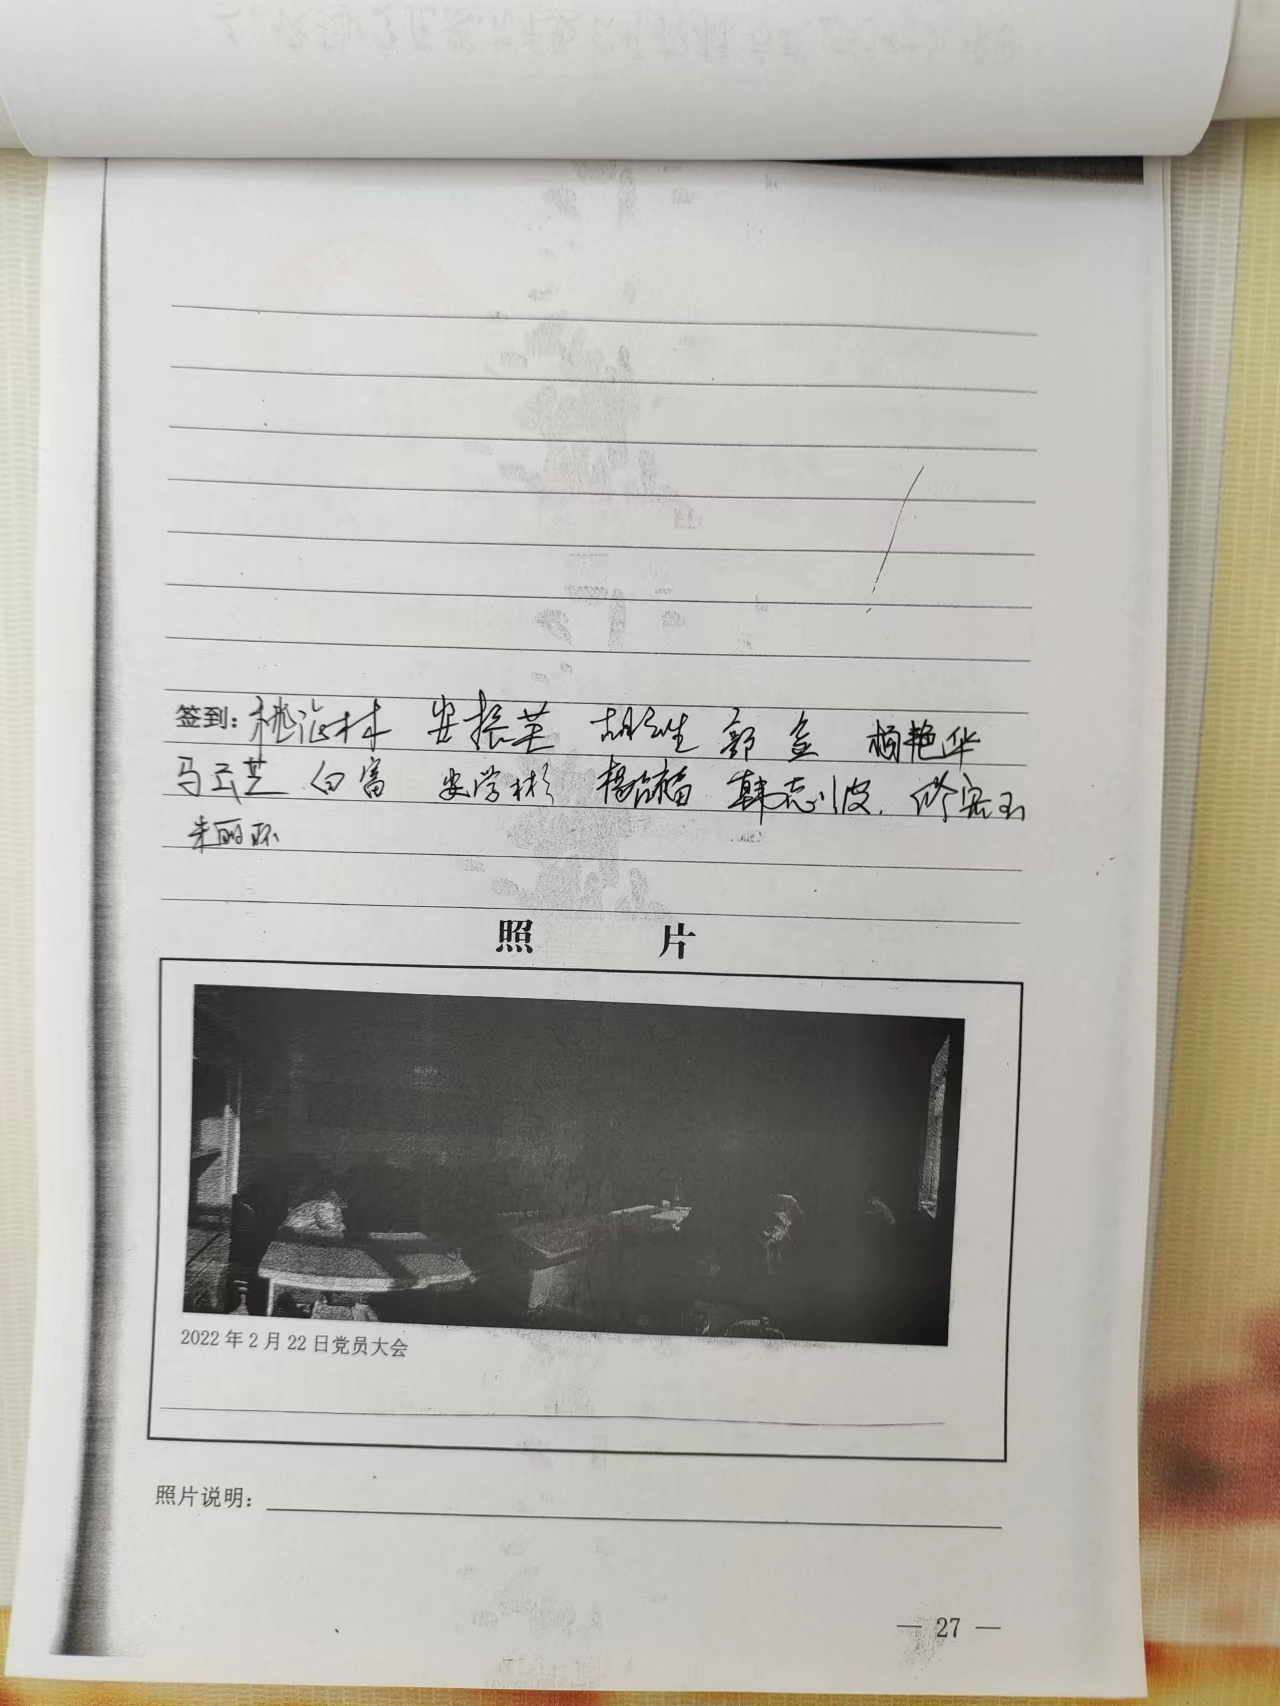 签到: 姚海林 安振英 胡云生 郭金 杨艳华
马云芝 白富 安学彬 杨福 韩志波. 修宏玉
朱丽环
照 片
2022年2月22日党员大会
照片说明:
— 27 —